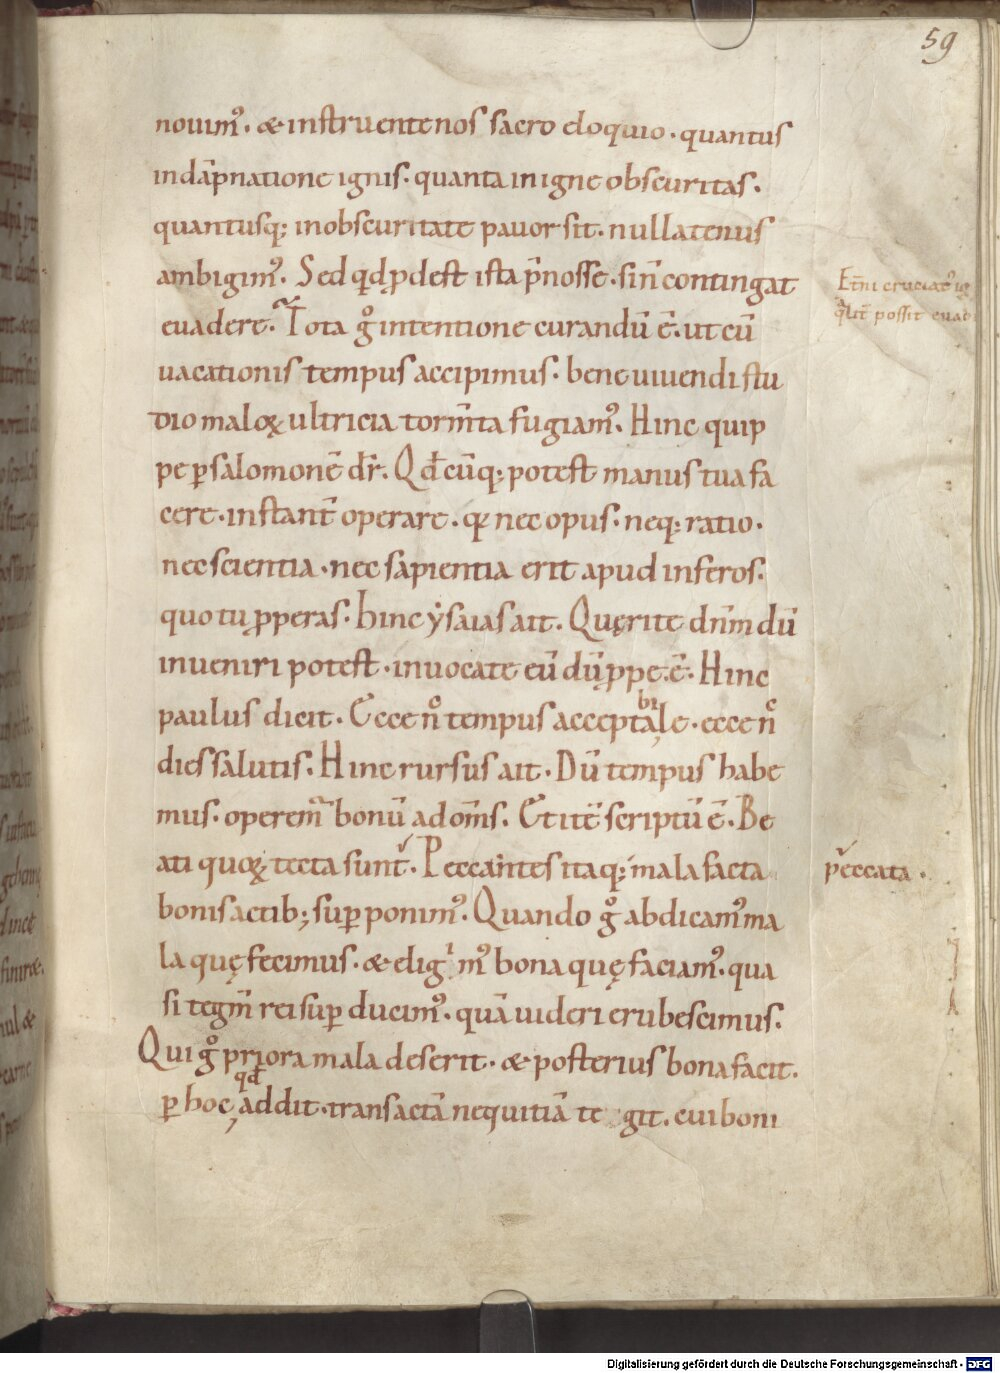 59
nouim᷒. & instruente nos sacro eloquio. quantus
in dāpnatione ignis. quanta in igne obscuritas.
quantusq; in obscuritate pauor sit. nullatenus
ambigim᷒. Sed qd ꝓdest ista p̄nosse. si n̄ contingat
euadere. Tota gͦ intentione curandū ē. ut cū
uacationis tempus accipimus. bene uiuendi stu
dio maloꝝ ultricia torm̄ta fugiam᷒. Hinc quip
pe ꝑ salomonē dr̄. Qd̄cūq; potest manus tua fa
cere. instant̄ operare. qꝛ nec opus. neq; ratio.
nec scientia. nec sapientia erit apud inferos.
quo tu ꝓperas. hinc ẏsaias ait. Quęrite dn̄m dū
inueniri potest. inuocate eū dū ꝓpe ē. Hinc
paulus dicit. Ecce nᶜ tempus acceptabile. ecce nᶜ
dies salutis. Hinc rursus ait. Dū tempus habe
mus. operem᷒ bonū ad om̄s. Et itē scriptū ē. Be
ati quoꝝ tecta sunt. Peccantes itaq; mala facta
bonis actib; suꝑponim᷒. Quando gͦ abdicam᷒ ma
la quę fecimus. & eligim᷒ bona quę faciam᷒. qua
si tegm̄ rei suꝑducim᷒. quā uideri erubescimus.
Qui gͦ priora mala deserit. & posterius bona facit.
ꝑ hoc qd̄ addit. transactā nequitiā tegit. cui boni
Et̄ni cruciat᷒ ig
qͣlit̄ possit euad
peccata.
Digitalisierung gefördert durch die Deutsche Forschungsgemeinschaft - DFG